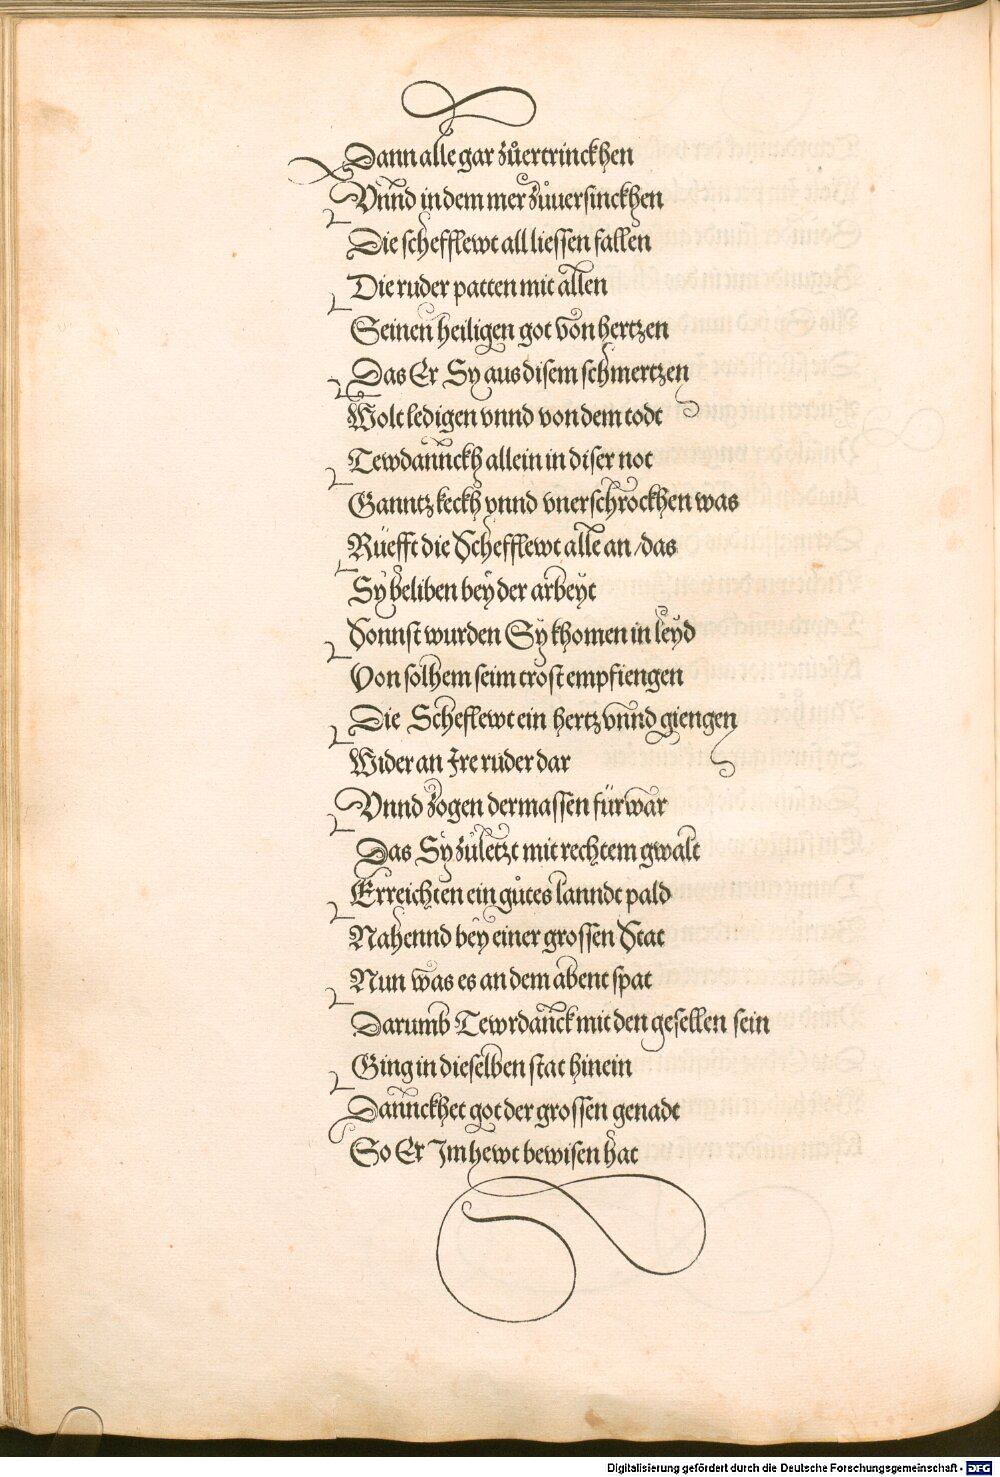 Dann alle gar zůertrinckhen
Vnnd in dem mer zůuersinckhen
Die schefflewt all liessen fallen
Die ruder patten mit allen
Seinen heiligen got von hertzen
Das Er Sy aus disem schmertzen
Wolt ledigen vnnd von dem todt
Tewdannckh allein in diser not
Ganntz keckh vnnd vnerschrockhen was
Rüefft die Schefflewt alle an / das
Sy beliben bey der arbeyt
Sonnst wurden Sy khomen in leyd
Von solhem seim trost empfiengen
Die Scheflewt ein hertz vnnd giengen
Wider an Ire ruder dar
Vnnd zogen dermassen fürwar
Das Sy zůletzt mit rechtem gwalt
Erreichten ein gůtes lanndt pald
Nahennd bey einer grossen Stat
Nun was es an dem abent spat
Darumb Tewrdanck mit den gesellen sein
Ging in dieselben stat hinein
Dannckhet got der grossen genadt
So Er Im hewt bewisen hat
Digitalisierung gefördert durch die Deutsche Forschungsgemeinschaft - DFG